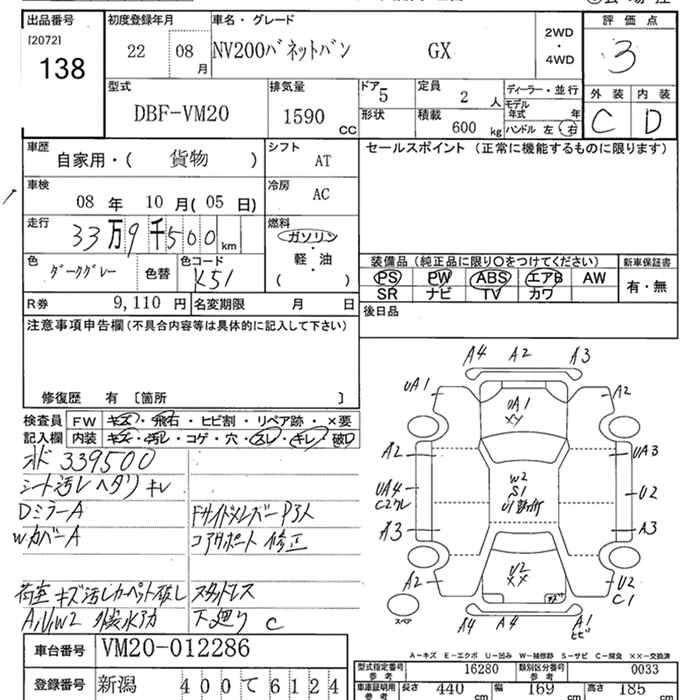 出品番号 [2072] 138
初度登録年月 22 08月
車名・グレード NV200バネットバン GX
2WD ・ 4WD
評価点 3
型式 DBF-VM20
排気量 1590 CC
ドア 5 形状
定員 2 人
積載 600 kg
ディーラー・並行
モデル年式 年
ハンドル 左 右
外装 C 内装 D
車歴 自家用・( 貨物 )
シフト AT
セールスポイント (正常に機能するものに限ります)
車検 08 年 10 月 ( 05 日)
冷房 AC
走行 33万9千500 km
燃料 ガソリン ・ 軽・油 ( )
色 ダークグレー 色替 色コード K51
装備品 (純正品に限り○をつけてください) 新車保証書
PS PW ABS エアB AW 有・無
SR ナビ TV カワ
R券 9,110 円 名変期限 月 日
後日品
注意事項申告欄 (不具合内容等は具体的に記入して下さい)
修復歴 有 [箇所 ]
検査員 FW キズ・飛石・ヒビ割・リペア跡・×要
記入欄 内装 キズ・汚レ・コゲ・穴・スレ・キレ・破レ
339500
シート汚レ ヘタリ キレ
DミラーA
WカバーA
コアサポート 修正
荷室 キズ 汚レ カーペット破レ スタットレス
下廻り C
A4 A2 A3
UA1 A2
UA1
XX
A2 UA3
UA4 W2 S1 U2
A3 A3
U2
XX
A2 U2 C1
スペア A4 A4 A1 ヒビ
A－キズ E－エクボ U－凹み W－補修跡 S－サビ C－腐食 XX－交換済
車台番号 VM20-012286
型式指定番号 参考 16280 類別区分番号 参考 0033
登録番号 新潟 400 て 6124
車庫証明用 参考 長さ 440 cm 幅 169 cm 高さ 185 cm